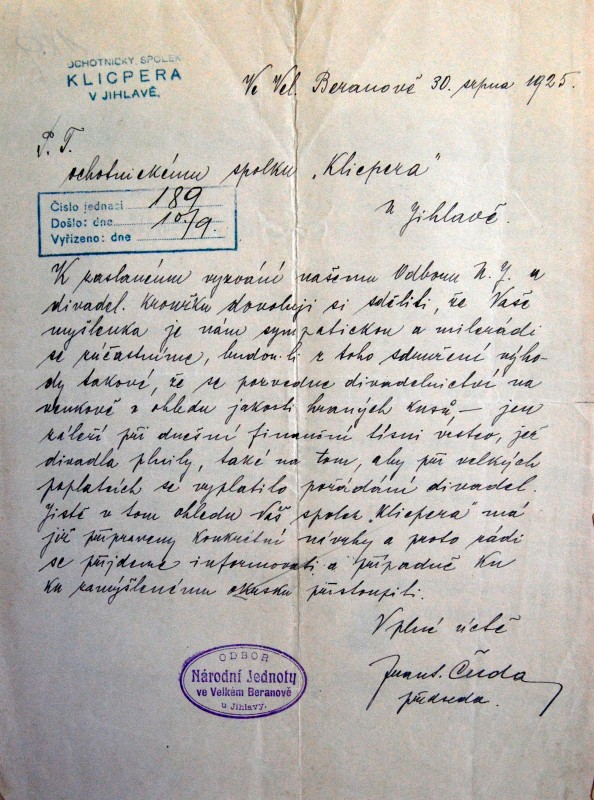 OCHOTNICKÝ SPOLEK
KLICPERA
V JIHLAVĚ.
Ve Vel. Beranově 30. srpna 1925.
P. T.
ochotnickému spolku „Klicpera“
v Jihlavě.
Číslo jednací 189
Došlo: dne 10/9.
Vyřízeno: dne
K zaslanému vyzvání našemu Odboru N. J. a
divadel. kroužku dovoluji si sděliti, že Vaše
myšlenka je nám sympatickou a milerádi
se zúčastníme, budou-li z toho sdružení výho-
dy takové, že se pozvedne divadelnictví na
venkově z ohledu jakosti hraných kusů, – jen
záleží při dnešní finanční tísni vrstev, jež
divadla plnily, také na tom, aby při velkých
poplatcích se vyplatilo pořádání divadel.
Jistě v tom ohledu Váš spolek „Klicpera“ má
již připraveny konkrétní návrhy a proto rádi
se přijdeme informovati a případně ku
ku zamýšlenému okrsku přistoupiti.
V plné úctě
Frant. Čuda
předseda.
ODBOR
Národní Jednoty
ve Velkém Beranově
u Jihlavy.